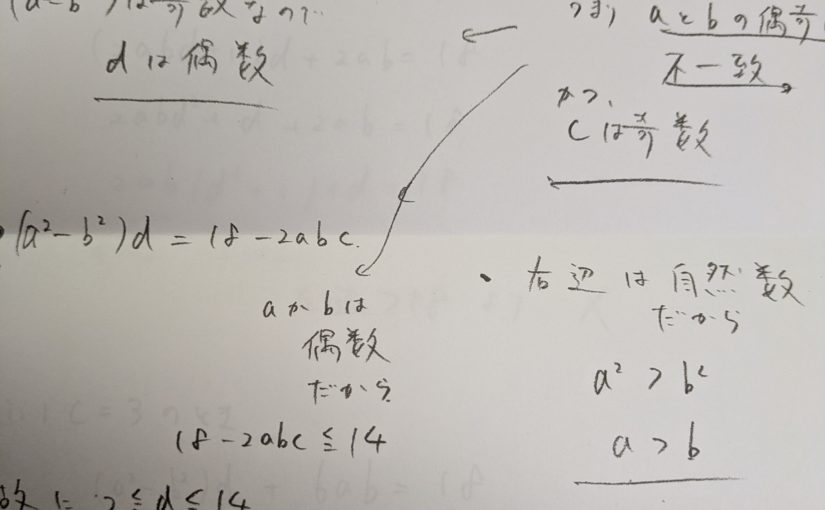 (a²-b²)は奇数なので
dは偶数
つまり aとbの偶奇
不一致
かつ、
cは奇数
(a²-b²)d = 18-2abc.
aかbは
偶数
だから
18-2abc ≦ 14
・右辺は自然数
だから
a² > b²
a > b
2 ≦ d ≦ 14